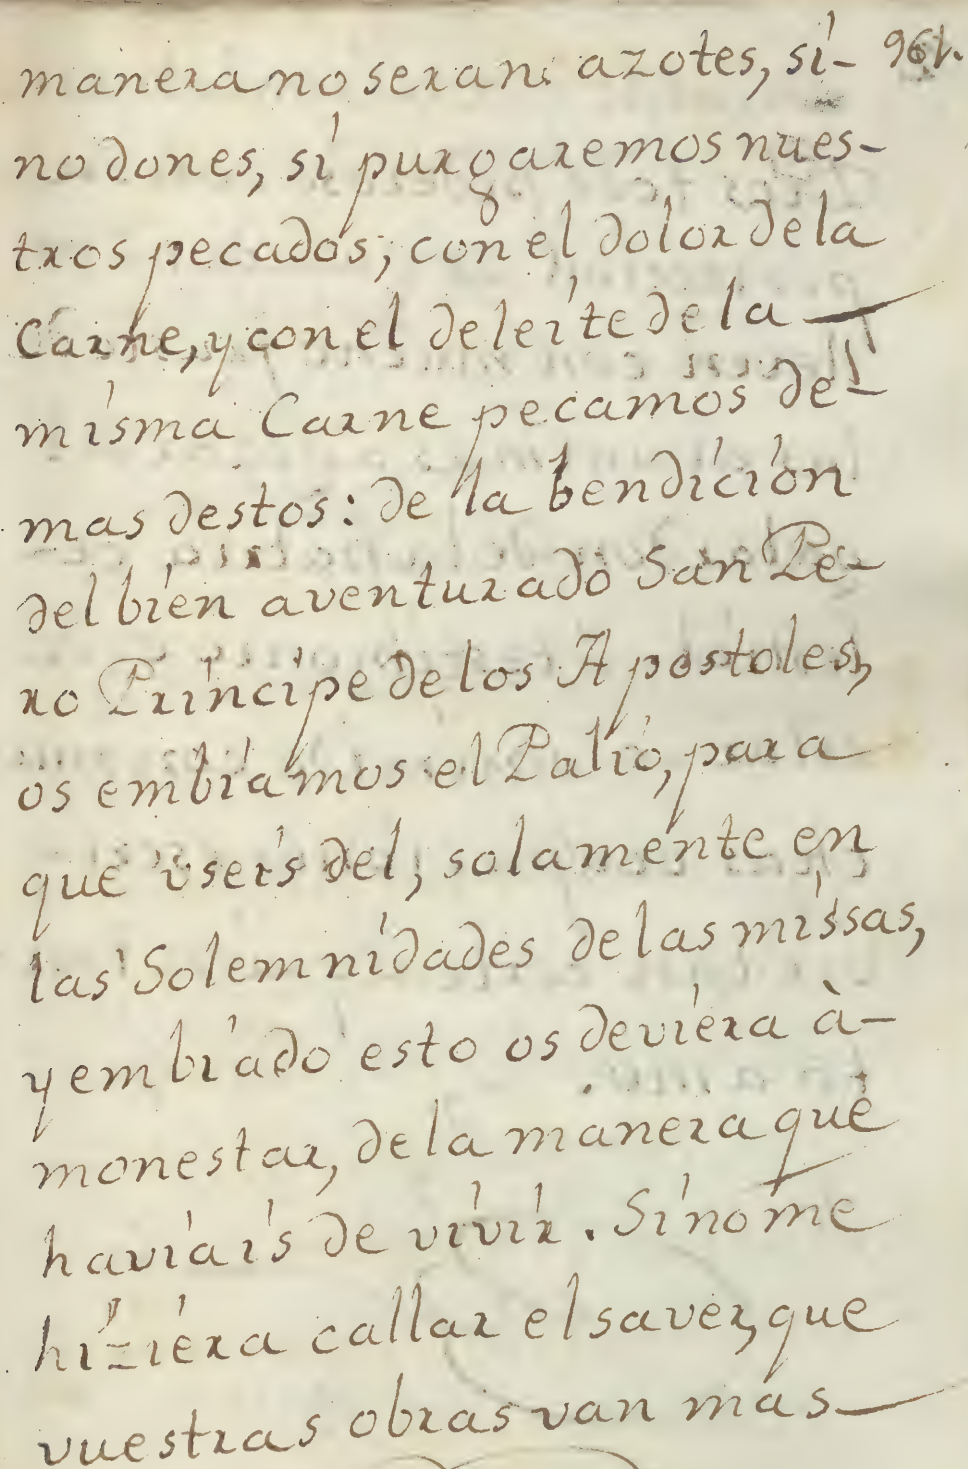 manera no seran azotes, si- 961.
no dones, si purgaremos nues-
tros pecados; con el dolor de la
Carne, y con el deleite de la
misma Carne pecamos de-
mas destos: de la bendicion
del bien aventurado San Pe-
ro Principe de los Apostoles,
os embiamos el Palio, para
que useis del; solamente en
las Solemnidades de las missas,
y embiado esto os deviera à-
monestar, de la manera que
haviais de vivir. Sino me
hiziera callar el saver, que
vuestras obras van mas